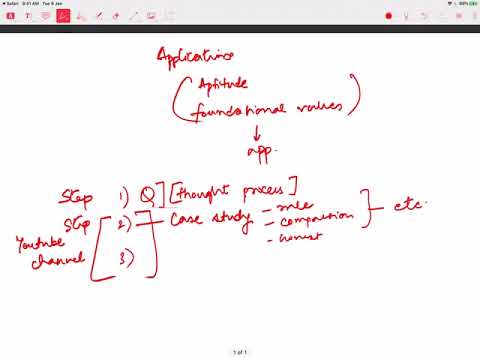 Safari 9:41 AM Tue 9 Jan
Applications
(Aptitude
foundational values)
↓
app.
Step 1) Q] [thought process]
Step 2) — Case study - - compassion - honest } — etc.
Youtube channel [ 3) ]
1 of 1